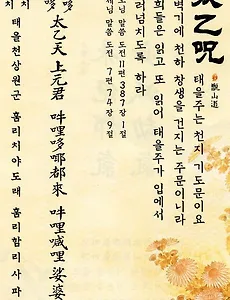 太乙呪
甑山道
태을주는 천지 기도문이요
벽기에 천하 창생을 건지는 주문이니라
희들은 읽고 또 읽어 태을주가 입에서
러넘치도록 하라
님 말씀 도전 11편 387장 1절
제님 말씀 도전 7편 74장 9절
哆
哆 太乙天上元君 吽哩哆㖿都來 吽哩喊哩娑婆
치
치 태을천상원군 훔리치야도래 훔리함리사파